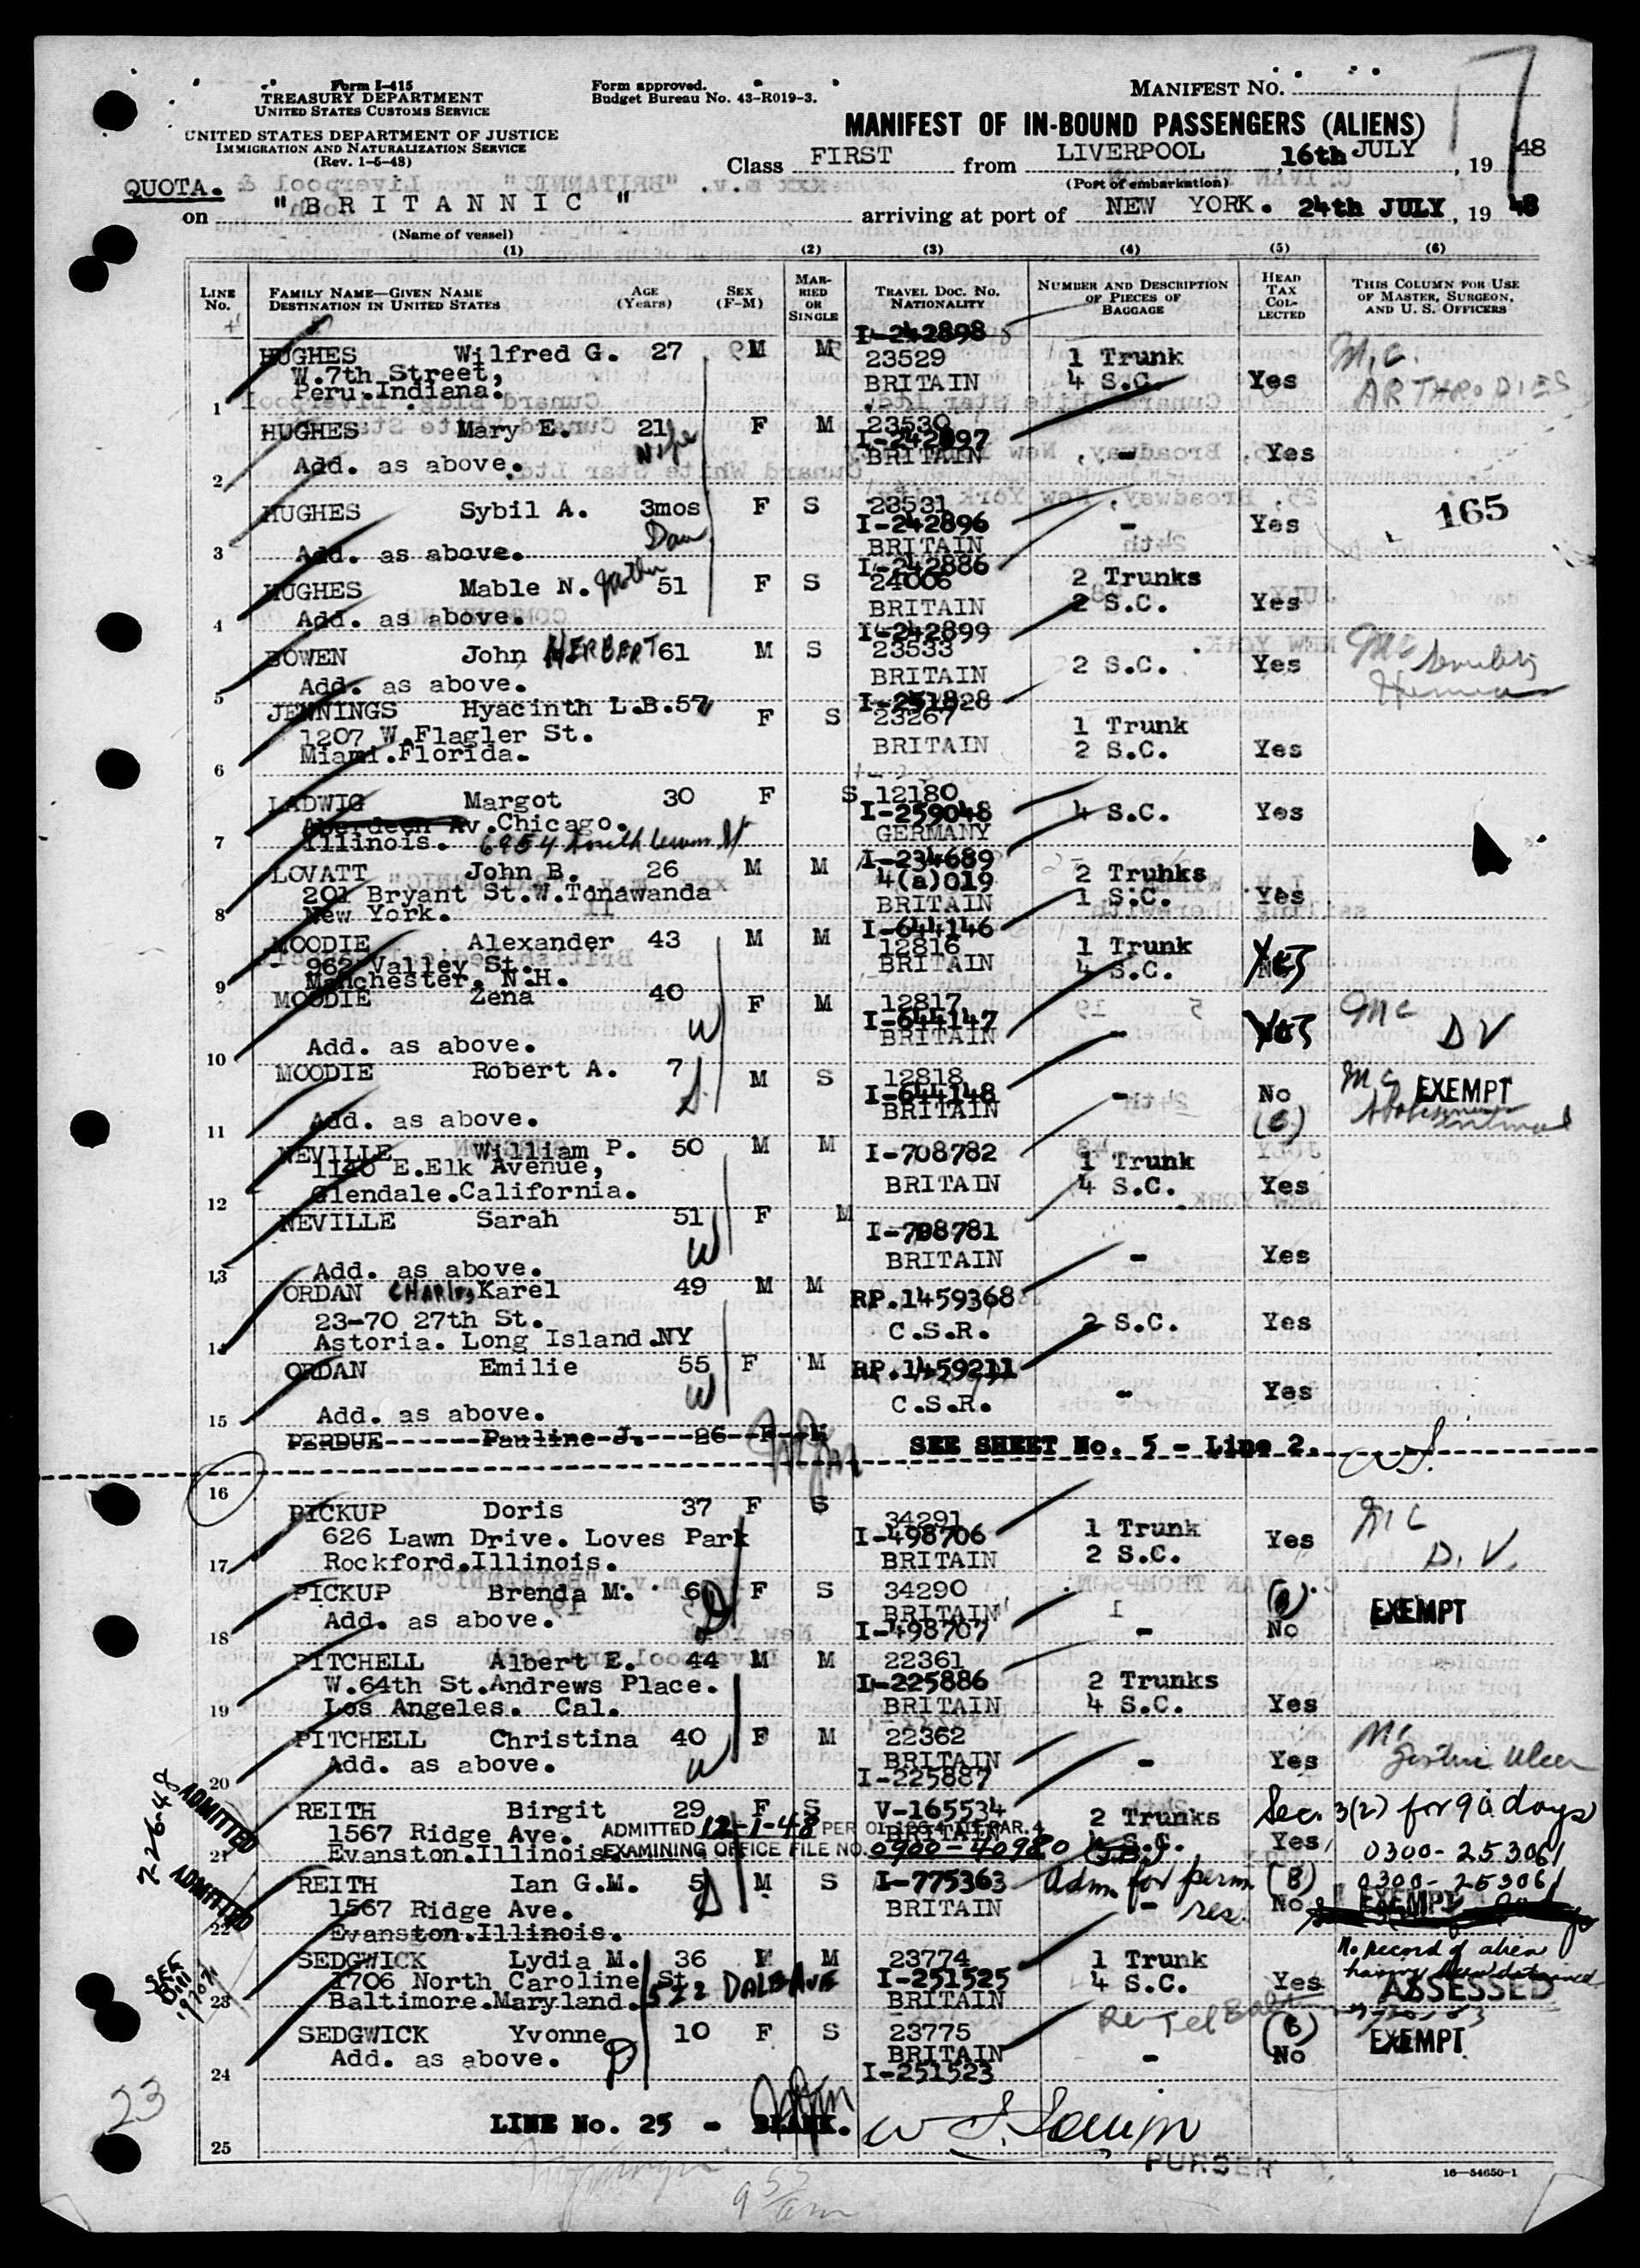 Form I-415
TREASURY DEPARTMENT
UNITED STATES CUSTOMS SERVICE
UNITED STATES DEPARTMENT OF JUSTICE
IMMIGRATION AND NATURALIZATION SERVICE
(Rev. 1-6-48)
Form approved.
Budget Bureau No. 43-R019-3.
MANIFEST NO.
17
MANIFEST OF IN-BOUND PASSENGERS (ALIENS)
Class FIRST from LIVERPOOL, 16th JULY, 19 48
(Port of embarkation)
QUOTA.
on "BRITANNIC" arriving at port of NEW YORK. 24th JULY, 19 48
(Name of vessel)
(1) (2) (3) (4) (5) (6)
LINE No. FAMILY NAME—GIVEN NAME DESTINATION IN UNITED STATES AGE (Years) SEX (F-M) MARRIED OR SINGLE TRAVEL DOC. NO. NATIONALITY NUMBER AND DESCRIPTION OF PIECES OF BAGGAGE HEAD TAX COLLECTED THIS COLUMN FOR USE OF MASTER, SURGEON, AND U. S. OFFICERS
I-242898
HUGHES Wilfred G. 27 M M 23529 1 Trunk M.C
W.7th Street, BRITAIN 4 S.C. Yes ARTHRODIES
1 Peru.Indiana.
HUGHES Mary E. 21 F M 23530
Wife I-242897
2 Add. as above. BRITAIN - Yes
HUGHES Sybil A. 3mos F S 23531 165
Dau I-242896 - Yes
3 Add. as above. BRITAIN
I-242886
HUGHES Mable N. Mother 51 F S 24006 2 Trunks
4 Add. as above. BRITAIN 2 S.C. Yes
I-242899
BOWEN John HERBERT 61 M S 23533 MC
5 Add. as above. BRITAIN 2 S.C. Yes
I-251828
JENNINGS Hyacinth L.B. 57 F S 23267 1 Trunk
1207 W.Flagler St. BRITAIN 2 S.C. Yes
6 Miami.Florida.
LADWIG Margot 30 F S 12180
Aberdeen Av.Chicago. I-259048 4 S.C. Yes
7 Illinois. 6954 South GERMANY
I-234689
LOVATT John B. 26 M M 4(a)019 2 Trunks
201 Bryant St.W.Tonawanda BRITAIN 1 S.C. Yes
8 New York.
I-644146
MOODIE Alexander 43 M M 12816 1 Trunk
962 Valley St. BRITAIN 4 S.C. Yes
9 Manchester. N.H.
MOODIE Zena 40 F M 12817 MC
W I-644147 - Yes DV
10 Add. as above. BRITAIN
MOODIE Robert A. 7 M S 12818 MC
S I-644148 - No EXEMPT
11 Add. as above. BRITAIN
NEVILLE William P. 50 M M I-708782
1146 E.Elk Avenue, 1 Trunk
12 Glendale.California. BRITAIN 4 S.C. Yes
NEVILLE Sarah 51 F M I-708781
W BRITAIN - Yes
13 Add. as above.
ORDAN CHARLES Karel 49 M M RP.1459368
23-70 27th St. C.S.R. 2 S.C. Yes
14 Astoria. Long Island.NY
ORDAN Emilie 55 F M RP.1459211
W - Yes
15 Add. as above. C.S.R.
PERDUE Pauline J. 26 F M SEE SHEET No. 5 - Line 2.
16
PICKUP Doris 37 F S 34291 MC
626 Lawn Drive. Loves Park I-498706 1 Trunk Yes D.V.
17 Rockford.Illinois. BRITAIN 2 S.C.
PICKUP Brenda M. 6 F S 34290
D BRITAIN EXEMPT
18 Add. as above. I-498707 - No
PITCHELL Albert E. 44 M M 22361
W.64th St.Andrews Place. I-225886 2 Trunks
19 Los Angeles. Cal. BRITAIN 4 S.C. Yes
PITCHELL Christina 40 F M 22362 MC
W BRITAIN - Yes Ulcer
20 Add. as above. I-225887
7-26-48 ADMITTED
REITH Birgit 29 F S V-165534 2 Trunks Sec. 3(2) for 90 days
1567 Ridge Ave. ADMITTED 12-1-48 PER BRITAIN S.C. Yes 0300-253061
21 Evanston.Illinois. EXAMINING OFFICE FILE NO. 0900-40980
ADMITTED
REITH Ian G.M. 5 M S I-775363 Adm. for perm res. (B) 0300-253061
1567 Ridge Ave. S BRITAIN - No EXEMPT
22 Evanston.Illinois.
SEDGWICK Lydia M. 36 F M 23774 1 Trunk No record of alien
1706 North Caroline St. 522 DALB AVE I-251525 4 S.C. Yes having been detained
23 Baltimore.Maryland. BRITAIN ASSESSED
SEDGWICK Yvonne 10 F S 23775 Re Tel Balt (B)
D BRITAIN - No EXEMPT
24 Add. as above. I-251523
23
LINE No. 25 - BLANK.
25
PURSER
16—54650-1